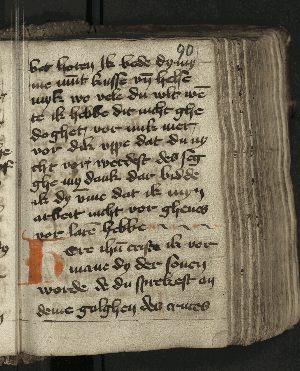 90
bet horen ik bede dy my
me mut kusse vn helse
myk wo vele du wlt we
te ik hebbe dit nicht ghe
doghet vor mik mer
vor dik vppe dat du ny
cht vor werdest des seg
ghe my dank dar bidde
ik dy vme dat ik myn
arbeit nicht vor gheues
vor lare hebbe
Here ihu criste ik vor
mane dy der souen
worde de du sprekest an
deme galghen des cruces